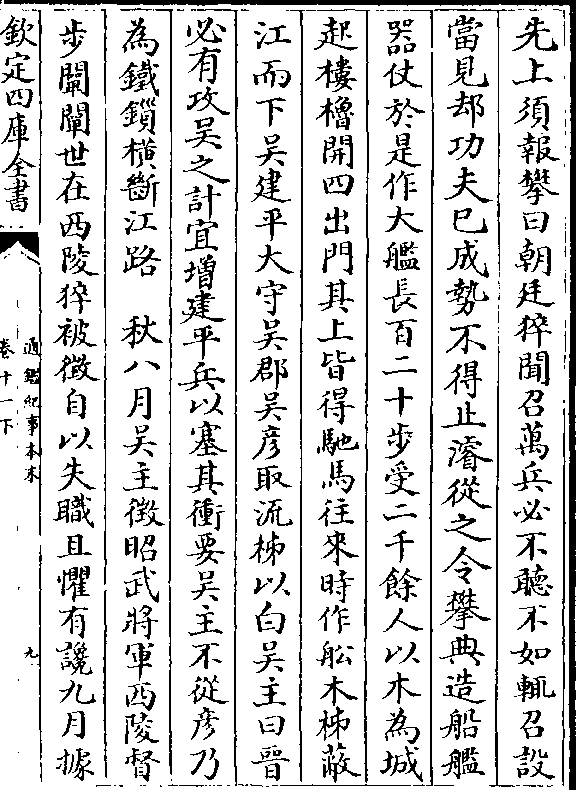 先上須報攀曰朝廷猝聞召萬兵必不聽不如輒召設
當見却功夫已成勢不得止濬從之令攀典造船艦
器仗於是作大艦長百二十步受二千餘人以木為城
起樓櫓開四出門其上皆得馳馬往來時作船木柹蔽
江而下吳建平大守吳郡吳彥取流柹以白吳主曰晉
必有攻吳之計宜增建平兵以塞其衝要吳主不從彥乃
為鐵鎖橫斷江路　秋八月吳主徵昭武將軍西陵督
步闡闡世在西陵猝被徵自以失職且懼有讒九月據
欽定四庫全書
通鑑紀事本末
卷十一下
九